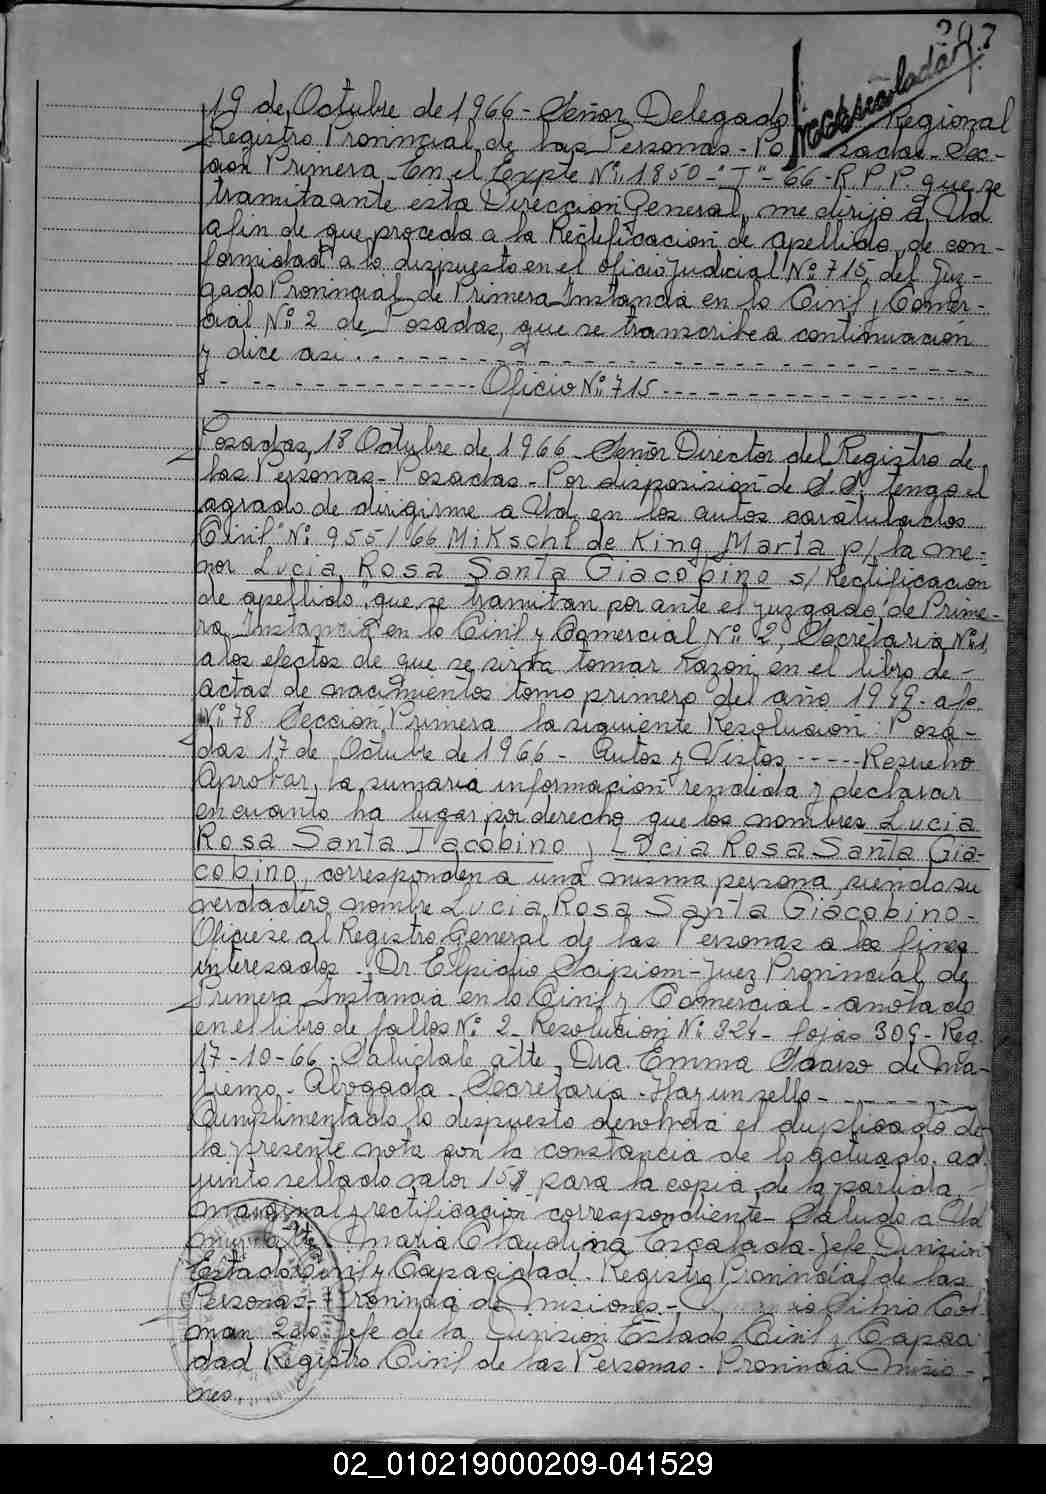 19 de Octubre de 1966 - Señor Delegado Regional
Registro Provincial de las Personas - Posadas - Sec-
ción Primera - En el Expte Nº 1850 - "J" - 66 - R.P.P. que se
tramita ante esta Dirección General, me dirijo a Ud
a fin de que proceda a la Rectificación de apellido, de con-
formidad a lo dispuesto en el oficio Judicial Nº 715 del Juz-
gado Provincial de Primera Instancia en lo Civil y Comer-
cial Nº 2 de Posadas, que se transcribe a continuación
y dice así
Oficio Nº 715
Posadas, 18 Octubre de 1966 - Señor Director del Registro de
las Personas - Posadas - Por disposisión de S.S. tengo el
agrado de dirigirme a Ud en los autos caratulados
Civil "Nº 955/66 Mikschl de King Marta p/ la me-
nor Lucia Rosa Santa Giacobino s/ Rectificación
de apellido", que se tramitan por ante el juzgado de Prime-
ra Instancia en lo Civil y Comercial Nº 2, Secretaria Nº 1,
a los efectos de que se sirva tomar razón en el libro de -
actas de nacimientos tomo primero del año 1949 - afo.
Nº 78 Sección Primera la siguiente Resolución: Posa-
das 17 de Octubre de 1966 - Autos y Vistos ----- Resuelvo
Aprobar, la sumaria información rendida y declarar
en cuanto ha lugar por derecho que los nombres Lucia
Rosa Santa Jacobino y Lucia Rosa Santa Gia-
cobino, corresponden a una misma persona, siendo su
verdadero nombre Lucia Rosa Santa Giacobino -
Ofíciese al Registro General de las Personas a los fines
interesados - Dr Elpidio Scipioni - Juez Provincial de
Primera Instancia en lo Civil y Comercial - anotado
en el libro de fallos Nº 2 - Resolución Nº 324 - fojas 309 - Reg.
17-10-66 - Saludale atte, Dra. Emma de Ma-
tienzo - Abogada - Secretaria - Hay un sello -
Cumplimentado lo dispuesto devolverá el duplicado de
la presente nota con la constancia de lo actuado, ad
junto sellado valor 15$ para la copia de la partida
marginal y rectificación correspondiente - Saludo a Ud
muy atte - Maria Claudina Escalada - Jefe División
Estado Civil y Capacidad - Registro Provincial de las
Personas - Provincia de Misiones - Silvio Col-
man 2do Jefe de la División Estado Civil y Capaci
dad Registro Civil de las Personas - Provincia Misio -
nes.
02_010219000209-041529